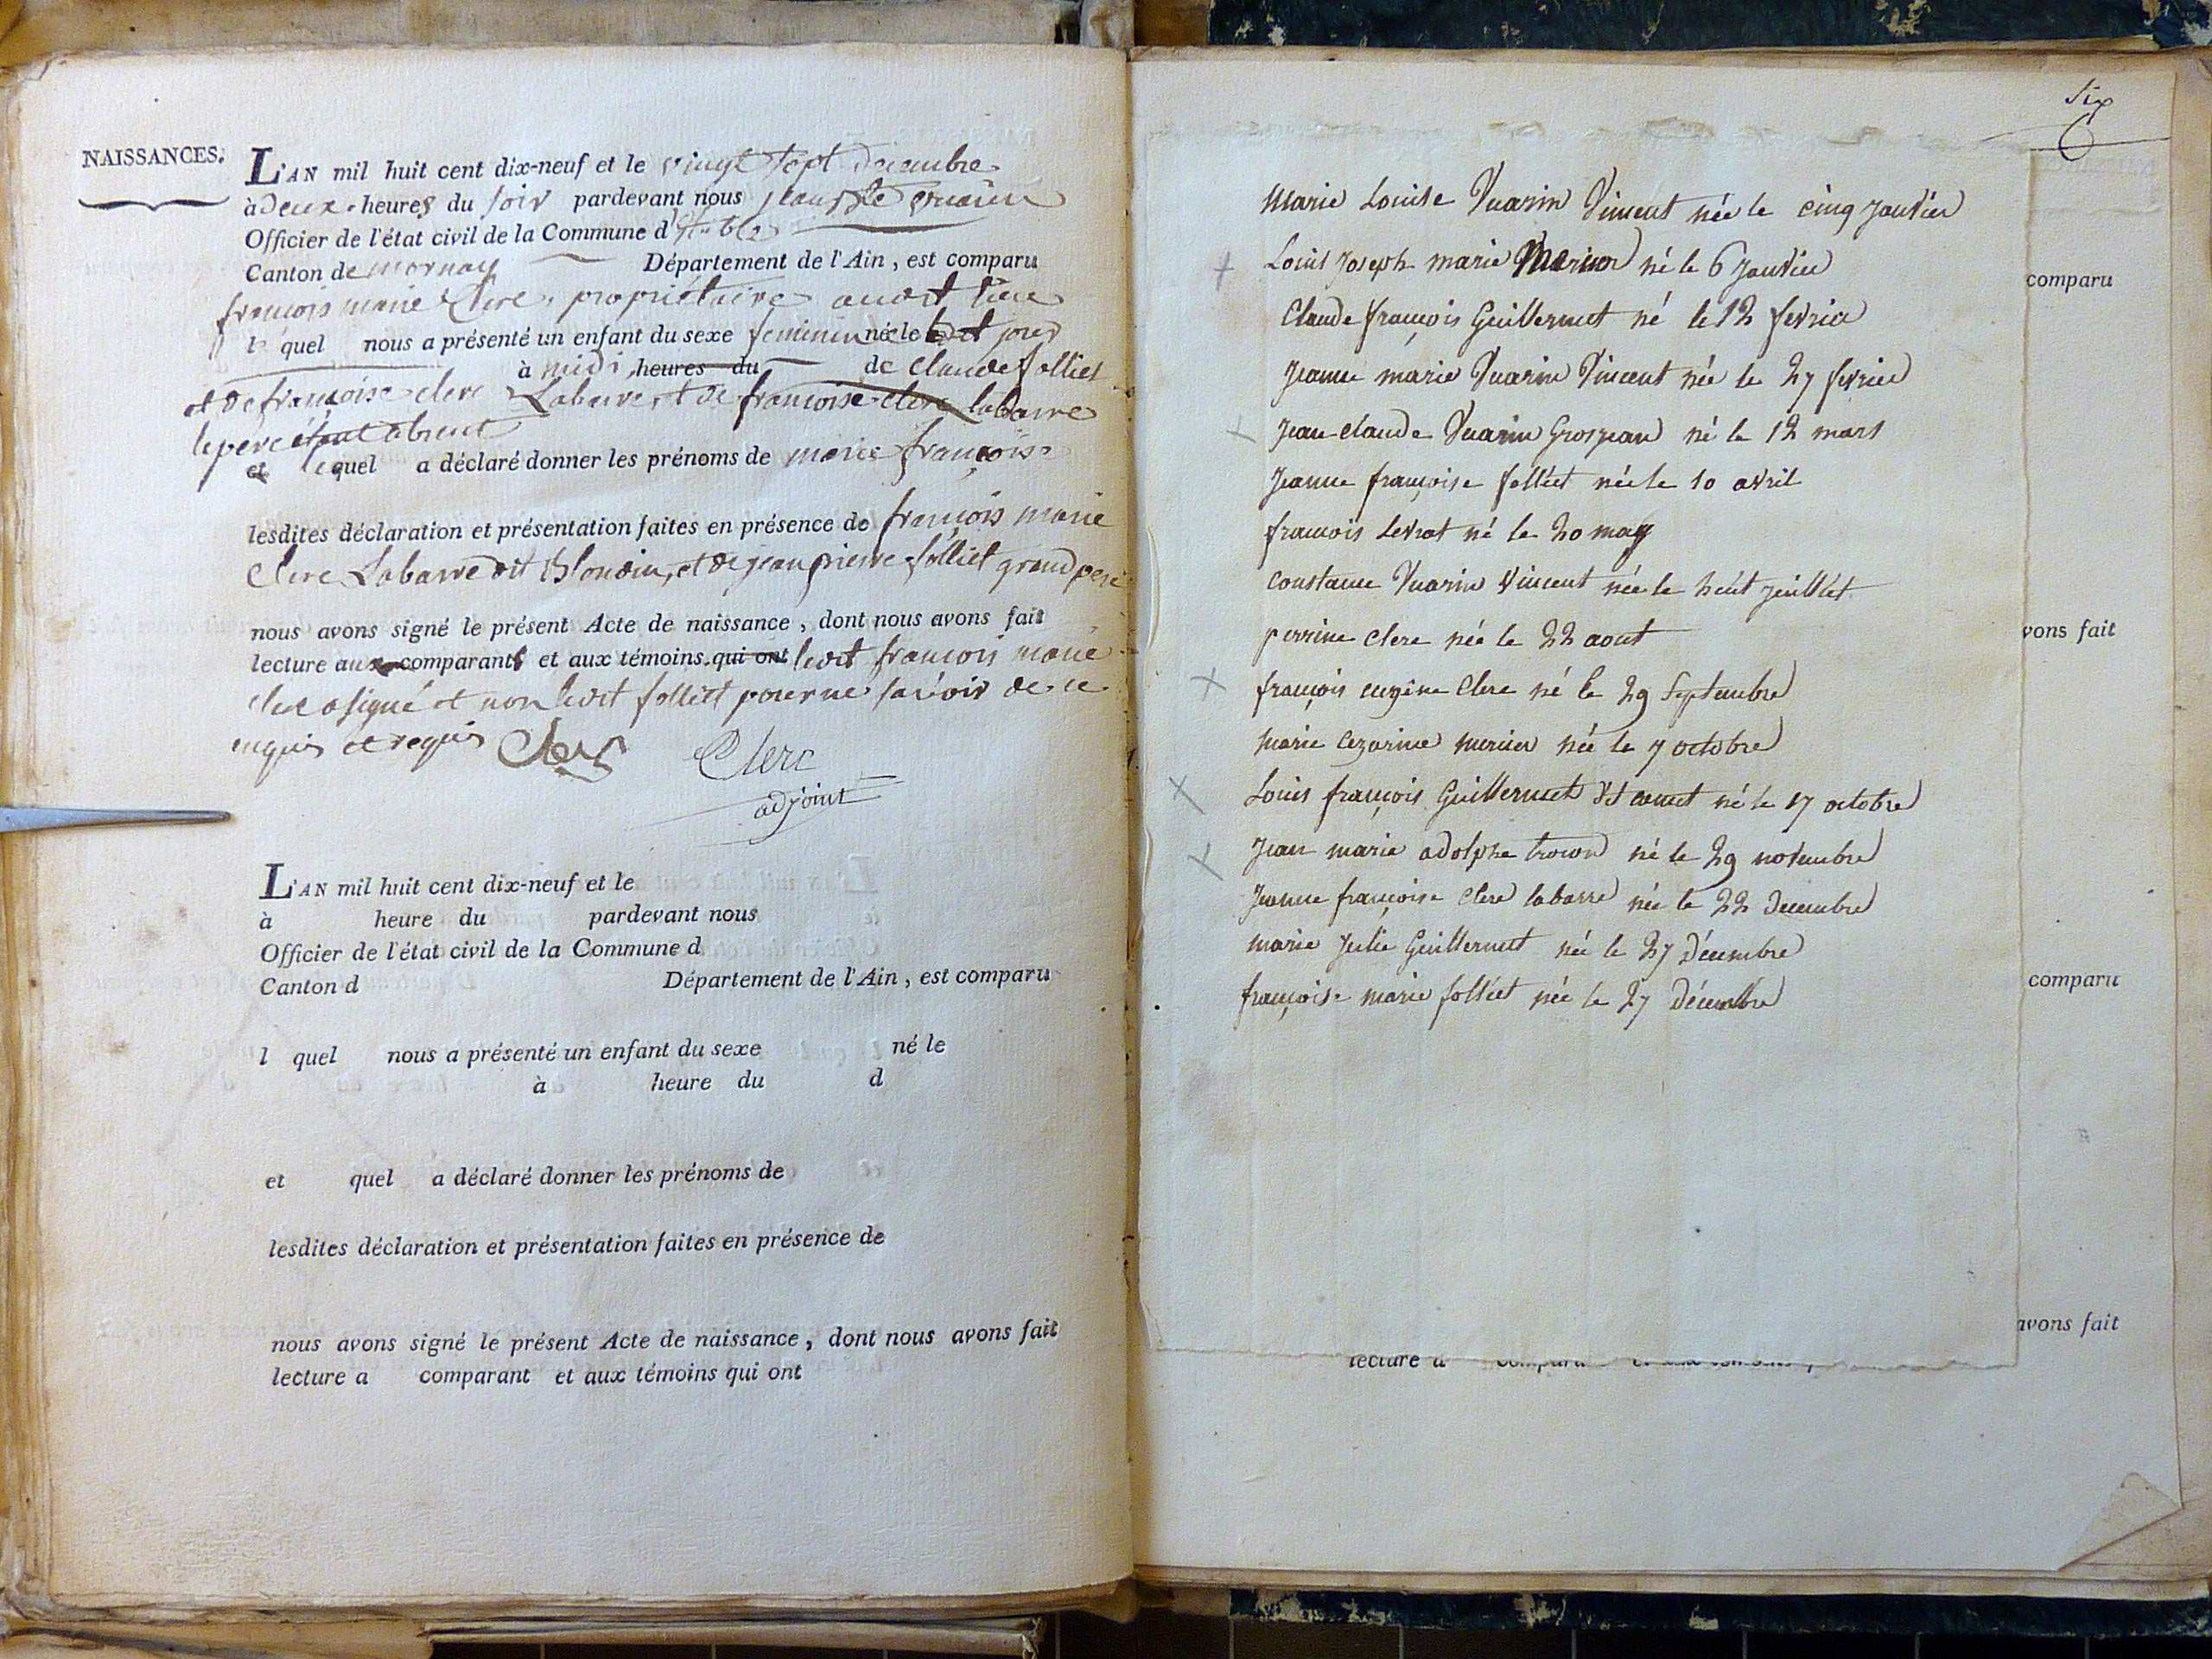 NAISSANCES.
L'AN mil huit cent dix-neuf et le vingt sept decembre
à deux heures du soir pardevant nous
Officier de l'état civil de la Commune d
Canton de mornay Département de l'Ain, est comparu
françois marie Clerc, propriétaire audit lieu
le quel nous a présenté un enfant du sexe feminin né le dit jour
à midi heures du de claude folliet
et de francoise clerc Labarre, et de francoise clerc labarre
le pere étant absent
et lequel a déclaré donner les prénoms de marie françoise
lesdites déclaration et présentation faites en présence de françois marie
Clerc Labarre dit Blondin, et de jean pierre folliet grand pere
nous avons signé le présent Acte de naissance, dont nous avons fait
lecture aux comparants et aux témoins qui ont ledit francois marie
clerc a signé et non ledit folliet pour ne savoir de ce
enquis et requis Clerc Clerc
adjoint
L'AN mil huit cent dix-neuf et le
à heure du pardevant nous
Officier de l'état civil de la Commune d
Canton d Département de l'Ain, est comparu
l quel nous a présenté un enfant du sexe né le
à heure du d
et quel a déclaré donner les prénoms de
lesdites déclaration et présentation faites en présence de
nous avons signé le présent Acte de naissance, dont nous avons fait
lecture a comparant et aux témoins qui ont
Six
6
Marie Louise Vuarin Vincent née le cinq janvier
Louis Joseph marie Mercier né le 6 janvier
Claude françois Guillermet né le 12 fevrier
Jeanne marie Vuarin Vincent née le 27 fevrier
Jean claude Vuarin Grosjean né le 12 mars
Jeanne françoise folliet née le 10 avril
françois Levrat né le 20 may
constance Vuarin Vincent née le huit juillet
perrine clerc née le 22 aout
françois eugène Clerc né le 29 Septembre
marie cezarine mercier née le 7 octobre
Louis françois Guillermet dit né le 17 octobre
Jean marie adolphe né le 29 novembre
Jeanne françoise Clerc labarre née le 22 decembre
marie Julie Guillermet née le 27 décembre
françoise marie folliet née le 27 décembre
comparu
vons fait
comparu
avons fait
lecture a